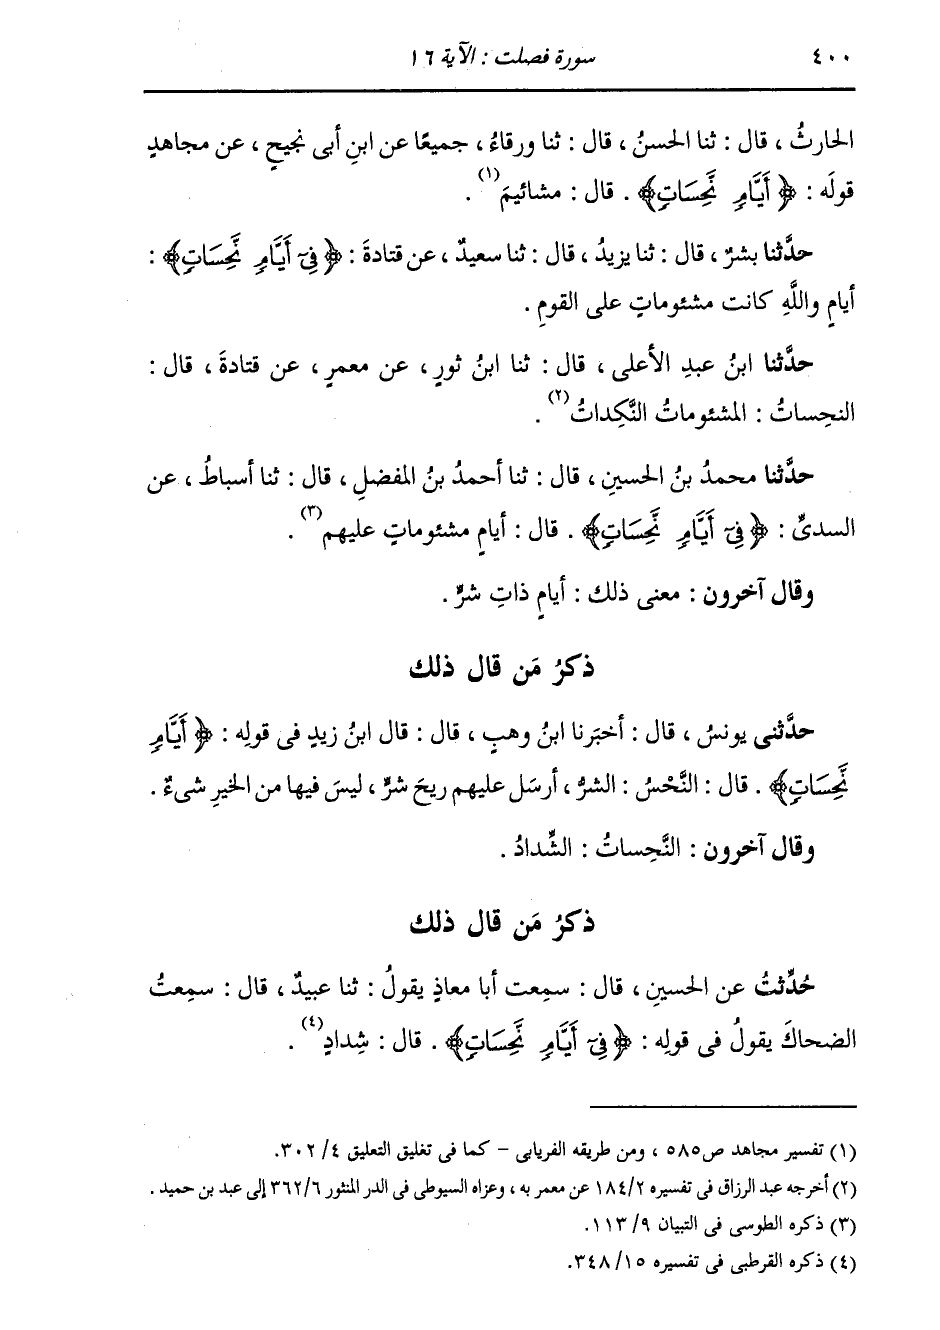 ٤٠٠ سورة فصلت : الآية ١٦
الحارثُ ، قال : ثنا الحسنُ ، قال : ثنا ورقاءُ ، جميعًا عن ابنِ أبى نجيحٍ ، عن مجاهدٍ
قولَه : ﴿ أَيَّامٍ نَّحِسَاتٍ﴾ . قال : مشائيمَ(١) .
حدَّثنا بشرٌ ، قال : ثنا يزيدُ ، قال : ثنا سعيدٌ ، عن قتادةَ : ﴿ فِىٓ أَيَّامٍ نَّحِسَاتٍ﴾ :
أيامٍ واللَّهِ كانت مشئوماتٍ على القومِ .
حدَّثنا ابنُ عبدِ الأعلى ، قال : ثنا ابنُ ثورٍ ، عن معمرٍ ، عن قتادةَ ، قال :
النحِساتُ : المشئوماتُ النَّكِداتُ(٢) .
حدَّثنا محمدُ بنُ الحسينِ ، قال : ثنا أحمدُ بنُ المفضلِ ، قال : ثنا أسباطُ ، عن
السدىِّ : ﴿ فِىٓ أَيَّامٍ نَّحِسَاتٍ﴾ . قال : أيامٍ مشئوماتٍ عليهم(٣) .
وقال آخرون : معنى ذلك : أيامٍ ذاتِ شرٍّ .
ذكرُ مَن قال ذلك
حدَّثنى يونسُ ، قال : أخبَرنا ابنُ وهبٍ ، قال : قال ابنُ زيدٍ فى قولِه : ﴿ أَيَّامٍ
نَّحِسَاتٍ﴾ . قال : النَّحْسُ : الشرُّ ، أرسَل عليهم ريحَ شرٍّ ، ليسَ فيها من الخيرِ شىءٌ .
وقال آخرون : النَّحِساتُ : الشِّدادُ .
ذكرُ مَن قال ذلك
حُدِّثتُ عن الحسينِ ، قال : سمِعت أبا معاذٍ يقولُ : ثنا عبيدٌ ، قال : سمِعتُ
الضحاكَ يقولُ فى قولِه : ﴿ فِىٓ أَيَّامٍ نَّحِسَاتٍ﴾ . قال : شِدادٍ(٤) .
(١) تفسير مجاهد ص٥٨٥ ، ومن طريقه الفريابى – كما فى تغليق التعليق ٤/ ٣٠٢.
(٢) أخرجه عبد الرزاق فى تفسيره ١٨٤/٢ عن معمر به ، وعزاه السيوطى فى الدر المنثور ٣٦٢/٦ إلى عبد بن حميد .
(٣) ذكره الطوسى فى التبيان ٩/ ١١٣.
(٤) ذكره القرطبى فى تفسيره ١٥/ ٣٤٨.